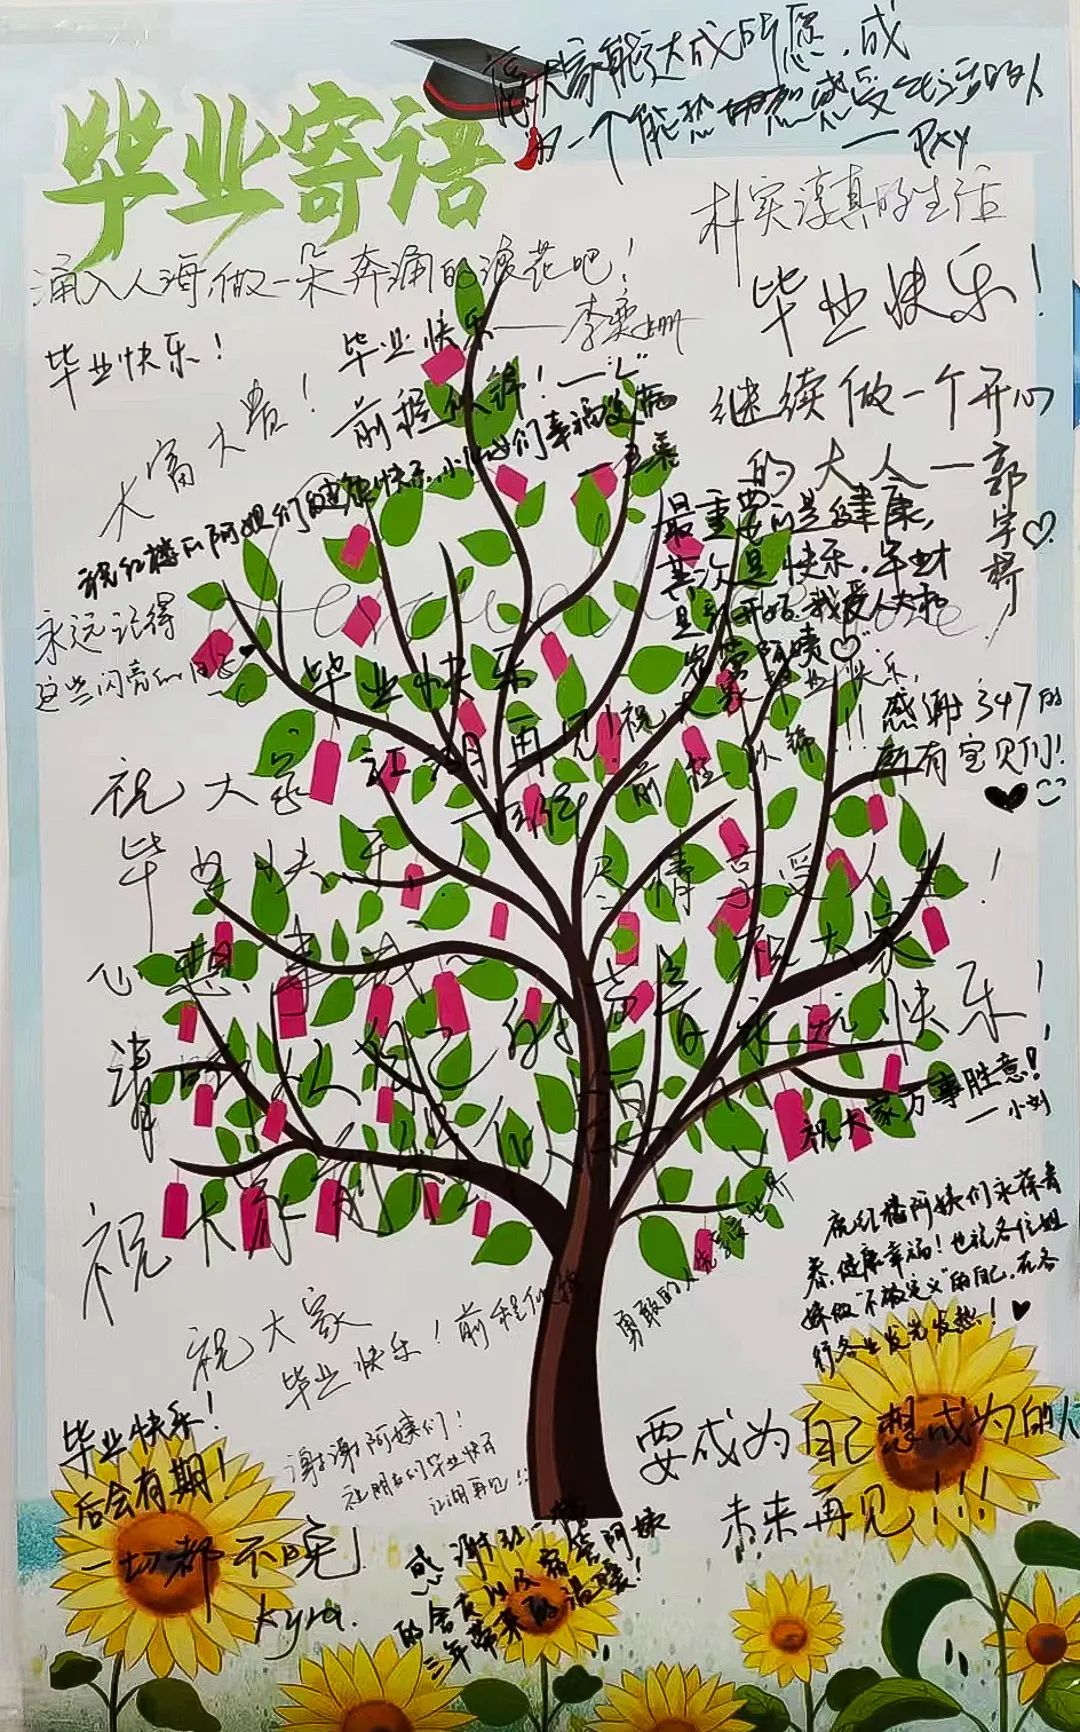 毕业寄语
愿大家能达成所愿，成
为一个能热切感受生活的人
— PXY
朴实淳真的生活
涌入人海，做一朵奔涌的浪花吧！
毕业快乐！
毕业快乐！
毕业快乐——李奕姗
大富大贵！
前程似锦！
继续做一个开心
的大人 —郭
祝红楼的阿姨们健康快乐，小姐妹们幸福美满
最重要的是健康，
其次是快乐，
永远记得
这些闪亮的日子
毕业快乐
江湖再见！祝
前程似锦！！！
感谢347的
所有宝贝们！
祝大家
毕业快乐
尽情享受人生！
心想事成
祝大家
永远快乐！
祝大家万事胜意！
— 小刘
祝大家
祝红楼阿姨们永葆青
春，健康幸福！也祝各位姐
妹做“不被定义”的自己，在各
行各业发光发热！
勇敢的人先享受世界
祝大家
毕业快乐！前程似锦
毕业快乐！
后会有期！
谢谢阿姨们！
祝朋友们毕业快乐
江湖再见！！
要成为自己想成为的人
未来再见！！！！
一切都不晚！
Kyra.
感谢红一楼
的舍友以及宿管阿姨
三年带来的温暖！